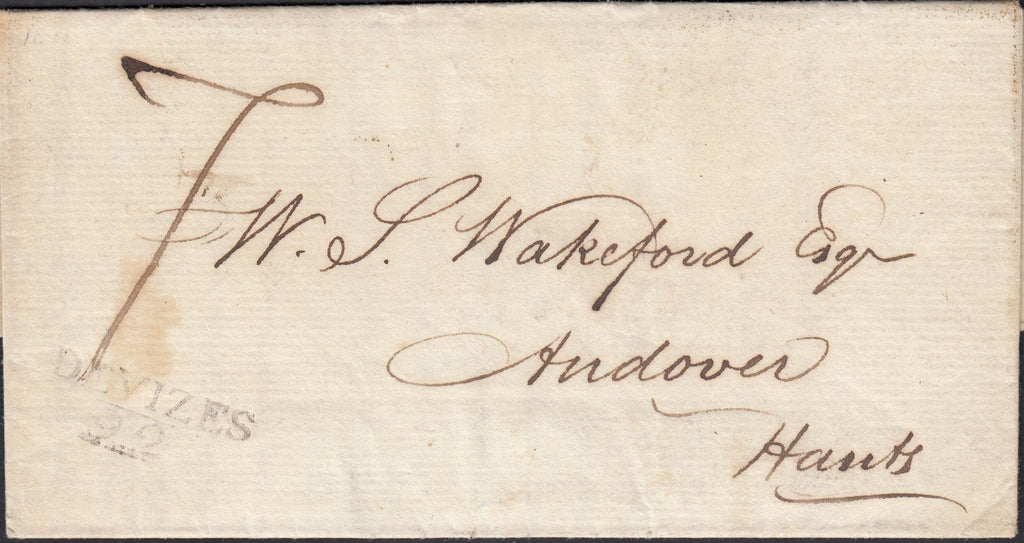 7
W. S. Wakeford Esqr
Andover
Hants
DEVIZES